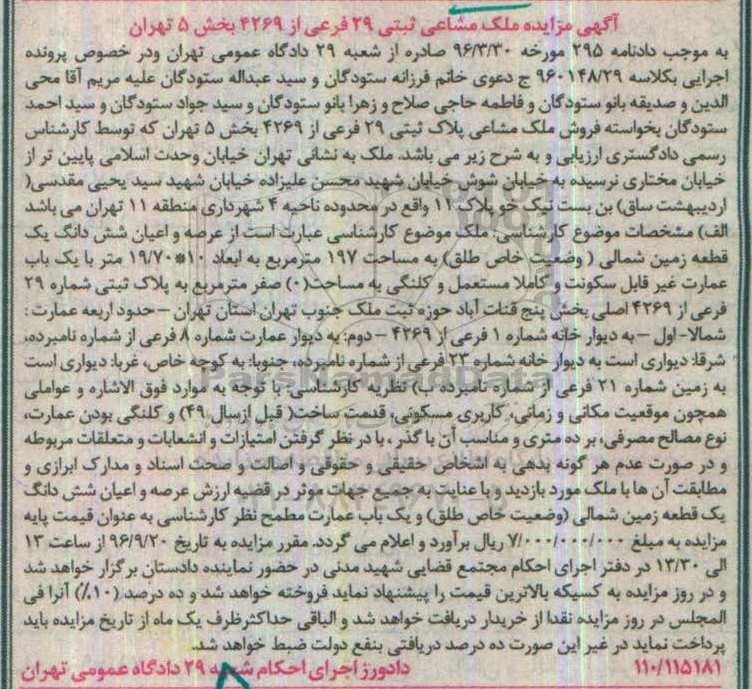 آگهی مزایده ملک مشاعی ثبتی ۲۹ فرعی از ۴۲۶۹ بخش ۵ تهران
به موجب دادنامه ۲۹۵ مورخه ۹۶/۳/۳۰ صادره از شعبه ۲۹ دادگاه عمومی تهران ودر خصوص پرونده
اجرایی بکلاسه ۹۶۰۱۴۸/۲۹ ج دعوی خانم فرزانه ستودگان و سید عبداله ستودگان علیه مریم آقا محی
الدین و صدیقه بانو ستودگان و فاطمه حاجی صلاح و زهرا بانو ستودگان و سید جواد ستودگان و سید احمد
ستودگان بخواسته فروش ملک مشاعی پلاک ثبتی ۲۹ فرعی از ۴۲۶۹ بخش ۵ تهران که توسط کارشناس
رسمی دادگستری ارزیابی و به شرح زیر می باشد. ملک به نشانی تهران خیابان وحدت اسلامی پایین تر از
خیابان مختاری نرسیده به خیابان شوش خیابان شهید محسن علیزاده خیابان شهید سید یحیی مقدسی(
اردیبهشت ساق) بن بست نیک خو پلاک ۱۱ واقع در محدوده ناحیه ۴ شهرداری منطقه ۱۱ تهران می باشد
الف) مشخصات موضوع کارشناسی: ملک موضوع کارشناسی عبارت است از عرصه و اعیان شش دانگ یک
قطعه زمین شمالی ( وضعیت خاص طلق) به مساحت ۱۹۷ مترمربع به ابعاد ۱۰*۱۹/۷۰ متر با یک باب
عمارت غیر قابل سکونت و کاملا مستعمل و کلنگی به مساحت(۰) صفر مترمربع به پلاک ثبتی شماره ۲۹
فرعی از ۴۲۶۹ اصلی بخش پنج قنات آباد حوزه ثبت ملک جنوب تهران استان تهران –حدود اربعه عمارت :
شمالا- اول – به دیوار خانه شماره ۱ فرعی از ۴۲۶۹ – دوم: به دیوار عمارت شماره ۸ فرعی از شماره نامبرده،
شرقا: دیواری است به دیوار خانه شماره ۲۳ فرعی از شماره نامبرده، جنوبا: به کوچه خاص، غربا: دیواری است
به زمین شماره ۲۱ فرعی از شماره نامبرده ب) نظریه کارشناسی: با توجه به موارد فوق الاشاره و عواملی
همچون موقعیت مکانی و زمانی، کاربری مسکونی، قدمت ساخت( قبل ازسال ۴۹) و کلنگی بودن عمارت،
نوع مصالح مصرفی، بر ده متری و مناسب آن با گذر ، با در نظر گرفتن امتیازات و انشعابات و متعلقات مربوطه
و در صورت عدم هر گونه بدهی به اشخاص حقیقی و حقوقی و اصالت و صحت اسناد و مدارک ابرازی و
مطابقت آن ها با ملک مورد بازدید و با عنایت به جمیع جهات موثر در قضیه ارزش عرصه و اعیان شش دانگ
یک قطعه زمین شمالی (وضعیت خاص طلق) و یک باب عمارت مطمح نظر کارشناسی به عنوان قیمت پایه
مزایده به مبلغ ۷/۰۰۰/۰۰۰/۰۰۰ ریال برآورد و اعلام می گردد. مقرر مزایده به تاریخ ۹۶/۹/۲۰ از ساعت ۱۳
الی ۱۳/۳۰ در دفتر اجرای احکام مجتمع قضایی شهید مدنی در حضور نماینده دادستان برگزار خواهد شد
و در روز مزایده به کسیکه بالاترین قیمت را پیشنهاد نماید فروخته خواهد شد و ده درصد (۱۰٪) آنرا فی
المجلس در روز مزایده نقدا از خریدار دریافت خواهد شد و الباقی حداکثرظرف یک ماه از تاریخ مزایده باید
پرداخت نماید در غیر این صورت ده درصد دریافتی بنفع دولت ضبط خواهد شد.
۱۱۰/۱۱۵۱۸۱ دادورز اجرای احکام شعبه ۲۹ دادگاه عمومی تهران